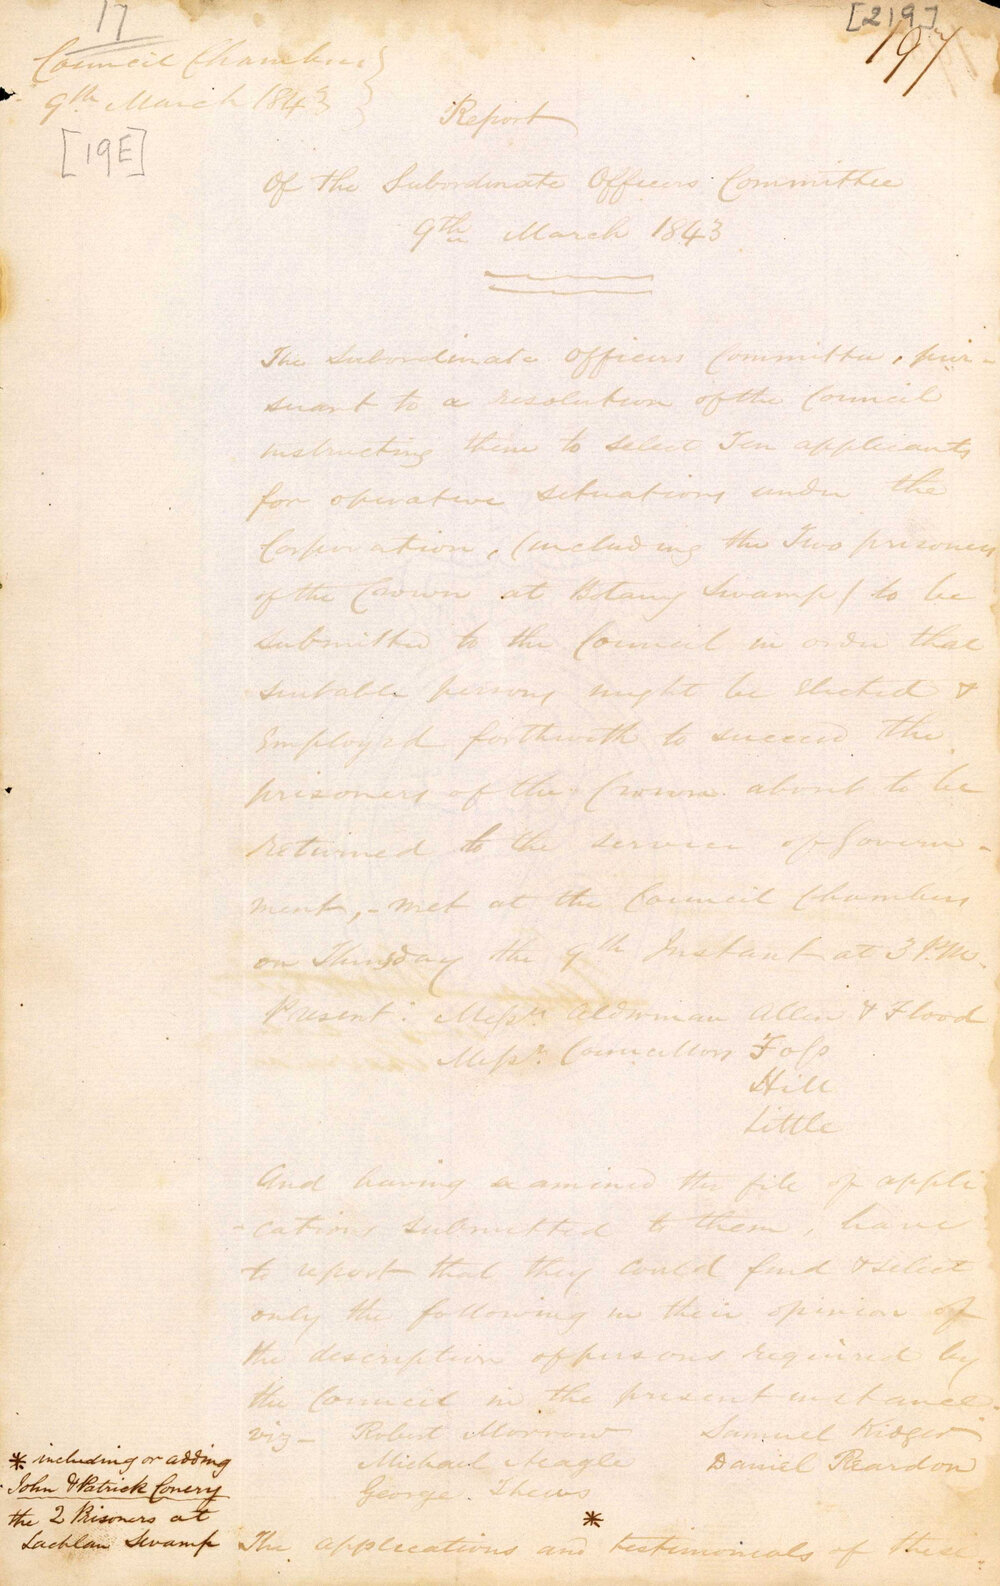 17
[219]
197
Council Chambers
9th March 1843
[19E]
Report
Of the Subordinate Officers Committee
9th March 1843
The Subordinate Officers Committee, pur-
suant to a resolution of the Council
instructing them to select Ten applicants
for operative situations under the
Corporation, (including the Two prisoners
of the Crown at Botany Swamp) to be
submitted to the Council in order that
suitable persons might be Elected &
Employed forthwith to succeed the
prisoners of the Crown about to be
returned to the service of Govern-
ment, - met at the Council Chambers
on Thursday the 9th Instant at 3 P.M.
Present: Messrs Alderman Allen & Flood
Messrs Councillors Foss
Hill
Little
And having examined the file of appli
-cations submitted to them, have
to report that they could find & select
only the following in their opinion of
the description of persons required by
the Council in the present instance.
viz- Robert Morrow Samuel Kidger
Michael Neagle Daniel Reardon
George Thews
* including or adding
John & Patrick Conery
the 2 Prisoners at
Lachlan Swamp
*
The applications and testimonials of these